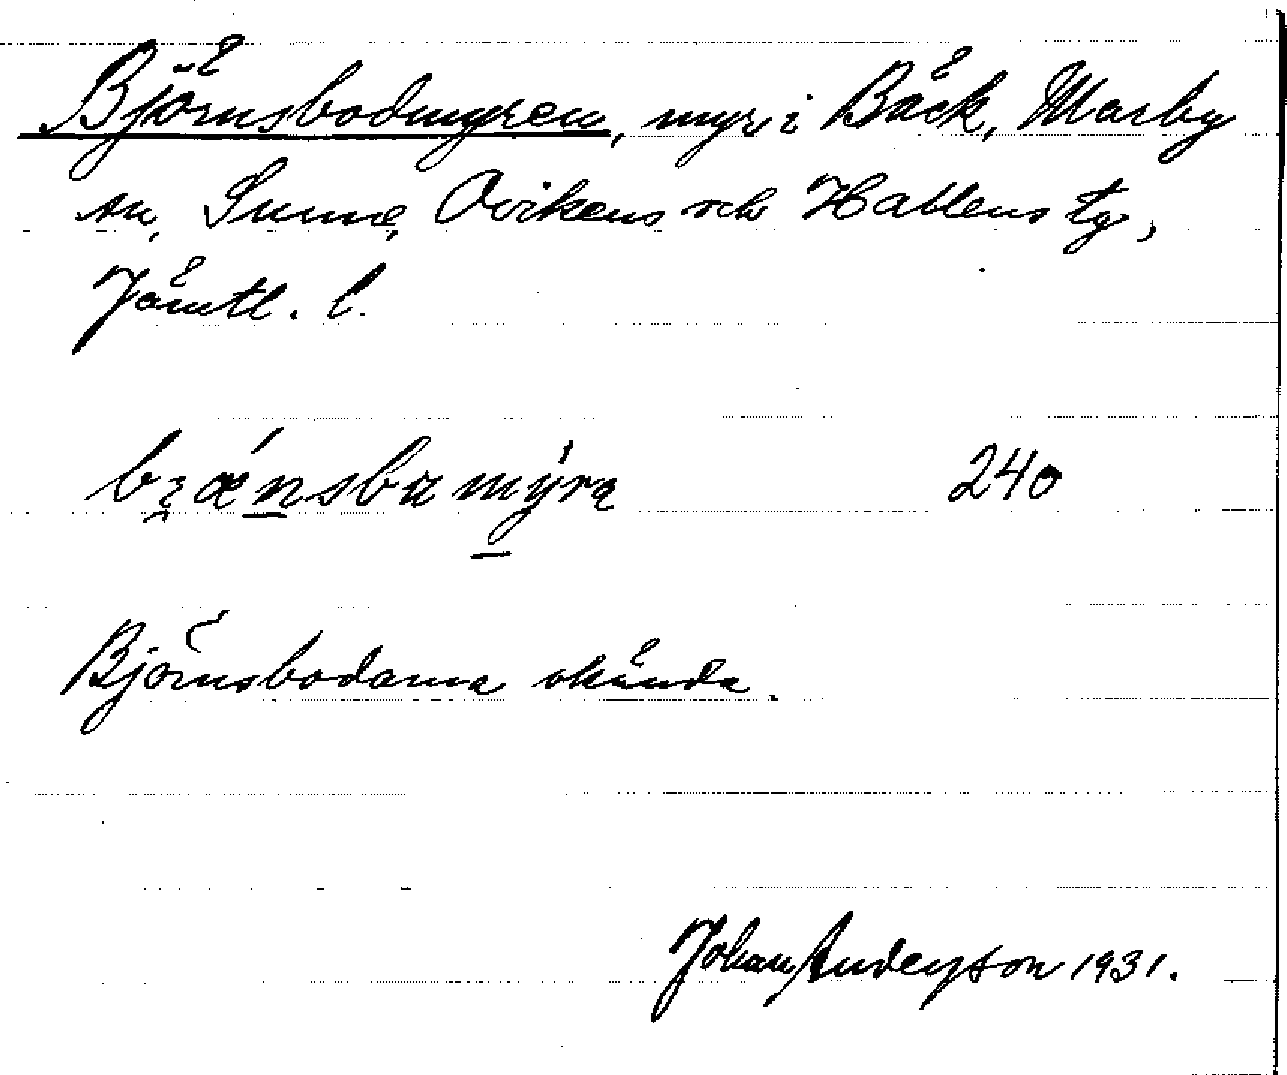 Björnsbodmyren, myr i Bäck, Marby
sn, Sunne, Ovikens och Hallens tg,
Jämtl. l.
240
Björnsbodarna okända.
Johan Anderson 1931.